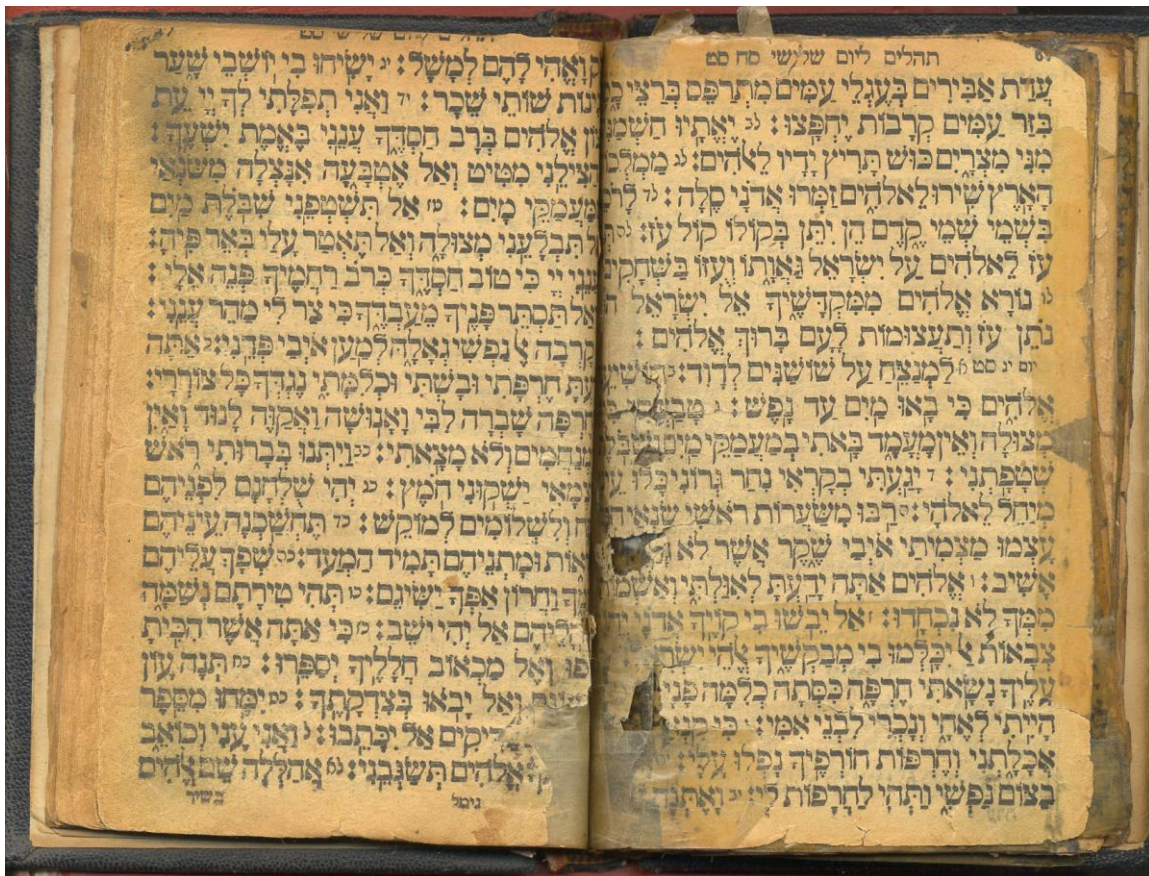 תהלים ליום שלישי סח סט
עֲדַת אַבִּירִים בְּעֶגְלֵי עַמִּים מִתְרַפֵּס בְּרַצֵּי
בִּזַּר עַמִּים קְרָבוֹת יֶחְפָּצוּ: לב יֶאֱתָיוּ חַשְׁמַנִּ
מִנִּי מִצְרָיִם כּוּשׁ תָּרִיץ יָדָיו לֵאלֹהִים: לג מַמְלְכ
הָאָרֶץ שִׁירוּ לֵאלֹהִים זַמְּרוּ אֲדֹנָי סֶלָה: לד לָרֹכ
בִּשְׁמֵי שְׁמֵי קֶדֶם הֵן יִתֵּן בְּקוֹלוֹ קוֹל עֹז: לה תְּ
עֹז לֵאלֹהִים עַל יִשְׂרָאֵל גַּאֲוָתוֹ וְעֻזּוֹ בַּשְּׁחָקִים
לו נוֹרָא אֱלֹהִים מִמִּקְדָּשֶׁיךָ אֵל יִשְׂרָאֵל ה
נֹתֵן עֹז וְתַעֲצֻמוֹת לָעָם בָּרוּךְ אֱלֹהִים:
יום יג סט א לַמְנַצֵּחַ עַל שׁוֹשַׁנִּים לְדָוִד: ב
אֱלֹהִים כִּי בָאוּ מַיִם עַד נָפֶשׁ: ג טָבַעְתִּי
מְצוּלָה וְאֵין מָעֳמָד בָּאתִי בְמַעֲמַקֵּי מַיִם
שְׁטָפָתְנִי: ד יָגַעְתִּי בְקָרְאִי נִחַר גְּרוֹנִי כָּלוּ עֵי
מְיַחֵל לֵאלֹהָי: ה רַבּוּ מִשַּׂעֲרוֹת רֹאשִׁי שֹׂנְאַי ח
עָצְמוּ מַצְמִיתַי אֹיְבַי שֶׁקֶר אֲשֶׁר לֹא
אָשִׁיב: ו אֱלֹהִים אַתָּה יָדַעְתָּ לְאִוַּלְתִּי וְאַשְׁמוֹ
מִמְּךָ לֹא נִכְחָדוּ: ז אַל יֵבֹשׁוּ בִי קֹוֶיךָ אֲדֹנָי
צְבָאוֹת אַל יִכָּלְמוּ בִי מְבַקְשֶׁיךָ אֱלֹהֵי יִשְׂרָ
עָלֶיךָ נָשָׂאתִי חֶרְפָּה כִּסְּתָה כְלִמָּה פָנָי
הָיִיתִי לְאֶחָי וְנָכְרִי לִבְנֵי אִמִּי:
אֲכָלָתְנִי וְחֶרְפּוֹת חוֹרְפֶיךָ נָפְלוּ עָלָי:
בַצּוֹם נַפְשִׁי וַתְּהִי לַחֲרָפוֹת לִי: יב וָאֶתְּנָה
וָאֱהִי לָהֶם לְמָשָׁל: יג יָשִׂיחוּ בִי יֹשְׁבֵי שָׁעַר
שׁוֹתֵי שֵׁכָר: יד וַאֲנִי תְפִלָּתִי לְךָ יְיָ עֵת
אֱלֹהִים בְּרָב חַסְדֶּךָ עֲנֵנִי בֶּאֱמֶת יִשְׁעֶךָ:
הַצִּילֵנִי מִטִּיט וְאַל אֶטְבָּעָה אִנָּצְלָה מִשֹּׂנְאַי
מִמַּעֲמַקֵּי מָיִם: טז אַל תִּשְׁטְפֵנִי שִׁבֹּלֶת מַיִם
תִּבְלָעֵנִי מְצוּלָה וְאַל תֶּאְטַר עָלַי בְּאֵר פִּיהָ:
יְיָ כִּי טוֹב חַסְדֶּךָ כְּרֹב רַחֲמֶיךָ פְּנֵה אֵלָי:
אַל תַּסְתֵּר פָּנֶיךָ מֵעַבְדֶּךָ כִּי צַר לִי מַהֵר עֲנֵנִי:
קָרְבָה אֶל נַפְשִׁי גְאָלָהּ לְמַעַן אֹיְבַי פְּדֵנִי: כ אַתָּה
חֶרְפָּתִי וּבָשְׁתִּי וּכְלִמָּתִי נֶגְדְּךָ כָּל צוֹרְרָי:
חֶרְפָּה שָׁבְרָה לִבִּי וָאָנוּשָׁה וָאֲקַוֶּה לָנוּד וָאַיִן
וְלֹא מָצָאתִי: כב וַיִּתְּנוּ בְּבָרוּתִי רֹאשׁ
יַשְׁקוּנִי חֹמֶץ: כג יְהִי שֻׁלְחָנָם לִפְנֵיהֶם
וְלִשְׁלוֹמִים לְמוֹקֵשׁ: כד תֶּחְשַׁכְנָה עֵינֵיהֶם
וּמָתְנֵיהֶם תָּמִיד הַמְעַד: כה שְׁפָךְ עֲלֵיהֶם
וַחֲרוֹן אַפְּךָ יַשִּׂיגֵם: כו תְּהִי טִירָתָם נְשַׁמָּה
אַל יְהִי יֹשֵׁב: כז כִּי אַתָּה אֲשֶׁר הִכִּיתָ
וְאֶל מַכְאוֹב חֲלָלֶיךָ יְסַפֵּרוּ: כח תְּנָה עָוֹן
וְאַל יָבֹאוּ בְּצִדְקָתֶךָ: כט יִמָּחוּ מִסֵּפֶר
אַל יִכָּתֵבוּ: ל וַאֲנִי עָנִי וְכוֹאֵב
אֱלֹהִים תְּשַׂגְּבֵנִי: לא אֲהַלְלָה שֵׁם אֱלֹהִים
בשיר